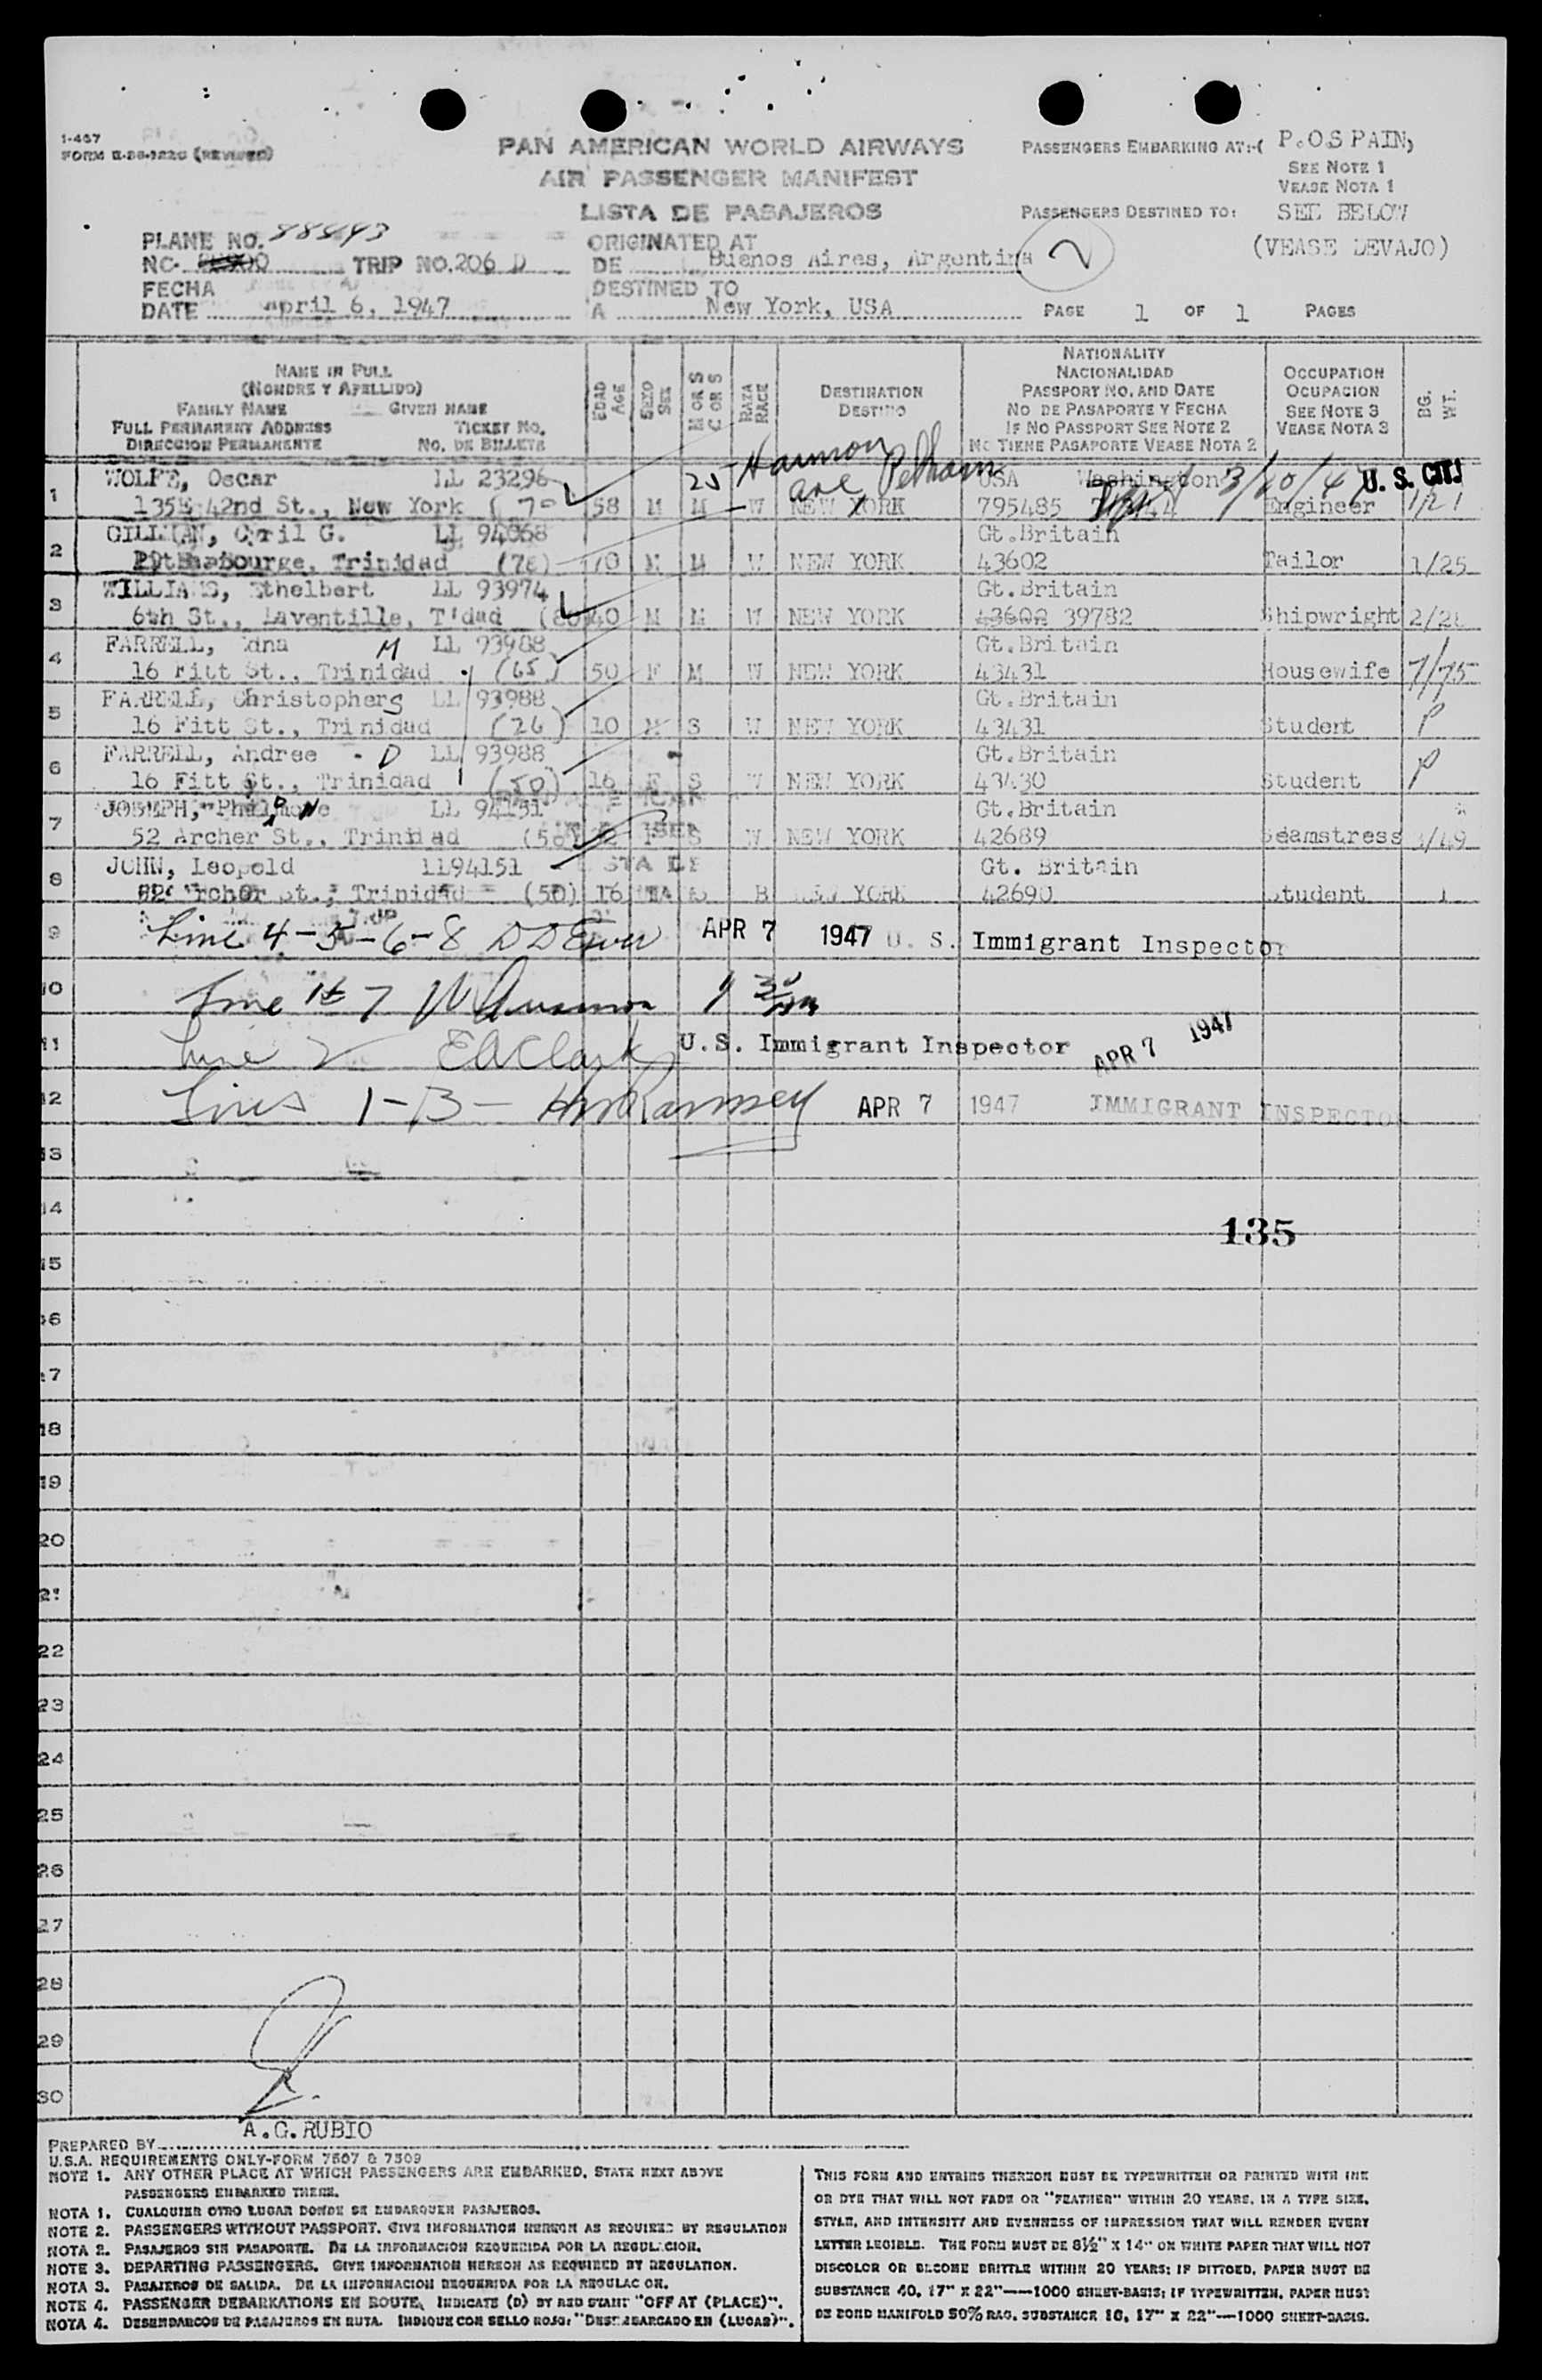 1-467
FORM (REVISED)
PAN AMERICAN WORLD AIRWAYS
AIR PASSENGER MANIFEST
LISTA DE PASAJEROS
PASSENGERS EMBARKING AT:-( P.OS PAIN,
SEE NOTE 1
VEASE NOTA 1
PASSENGERS DESTINED TO: SEE BELOW
(VEASE DEVAJO)
2
PLANE NO. 88843
NC- TRIP NO. 206 D
FECHA
DATE April 6, 1947
ORIGINATED AT
DE Buenos Aires, Argentina
DESTINED TO
A New York, USA
PAGE 1 OF 1 PAGES
NAME IN FULL
(NOMBRE Y APELLIDO)
FAMILY NAME GIVEN NAME
FULL PERMANENT ADDRESS TICKET NO.
DIRECCION PERMANENTE NO. DE BILLETE
EDAD AGE
SEXO SEX
M OR S C OR S
RAZA RACE
DESTINATION
DESTINO
NATIONALITY
NACIONALIDAD
PASSPORT NO. AND DATE
NO DE PASAPORTE Y FECHA
IF NO PASSPORT SEE NOTE 2
NO TIENE PASAPORTE VEASE NOTA 2
OCCUPATION
OCUPACION
SEE NOTE 3
VEASE NOTA 3
BG. WT.
25 Harmon Ave Pelham
1 WOLFE, Oscar LL 23296 USA Washington 3/20/47 U. S. CIT.
135E 42nd St., New York 58 M M W NEW YORK 795485 Engineer 1/21
2 GILLMAN, Cyril G. LL 94068 Gt.Britain
Trinidad (76) 70 M M W NEW YORK 43602 Tailor 1/25
3 WILLIAMS, Ethelbert LL 93974 Gt.Britain
6th St., Laventille, T'dad 40 M M W NEW YORK 43602 39782 Shipwright
4 FARRELL, Edna M LL 93988 Gt.Britain
16 Fitt St., Trinidad (65) 50 F M W NEW YORK 43431 Housewife 7/75
5 FARRELL, Christophers LL 93988 Gt.Britain
16 Fitt St., Trinidad (26) 10 M S W NEW YORK 43431 Student P
6 FARRELL, Andree - D LL 93988 Gt.Britain
16 Fitt St., Trinidad (50) 16 F S W NEW YORK 43430 Student P
7 JOSEPH, LL 94151 Gt.Britain
52 Archer St., Trinidad F S W NEW YORK 42689 Seamstress
8 JOHN, Leopold 1194151 Gt. Britain
Archer St., Trinidad (50) 16 B NEW YORK 42690 Student
9 Line 4-5-6-8 APR 7 1947 U. S. Immigrant Inspector
10 Line
11 Line 2 EAClark U.S. Immigrant Inspector APR 7 1947
12 Lines 1-3- Ramsey APR 7 1947 IMMIGRANT INSPECTOR
13
14
135
15
16
17
18
19
20
21
22
23
24
25
26
27
28
29
30
PREPARED BY A.G.RUBIO
U.S.A. REQUIREMENTS ONLY-FORM 7507 & 7509
NOTE 1. ANY OTHER PLACE AT WHICH PASSENGERS ARE EMBARKED, STATE NEXT ABOVE
PASSENGERS EMBARKED THERE.
NOTA 1. CUALQUIER OTRO LUGAR DONDE SE EMBARQUEN PASAJEROS.
NOTE 2. PASSENGERS WITHOUT PASSPORT. GIVE INFORMATION HEREON AS REQUIRED BY REGULATION
NOTA 2. PASAJEROS SIN PASAPORTE. DE LA INFORMACION REQUERIDA POR LA REGULACION.
NOTE 3. DEPARTING PASSENGERS. GIVE INFORMATION HEREON AS REQUIRED BY REGULATION.
NOTA 3. PASAJEROS DE SALIDA. DE LA INFORMACION REQUERIDA POR LA REGULACION.
NOTE 4. PASSENGER DEBARKATIONS EN ROUTE, INDICATE (D) BY RED STAMP "OFF AT (PLACE)".
NOTA 4. DESEMBARCOS DE PASAJEROS EN RUTA. INDIQUE CON SELLO ROJO: "DESEMBARCADO EN (LUGAR)".
THIS FORM AND ENTRIES THEREON MUST BE TYPEWRITTEN OR PRINTED WITH INK
OR DYE THAT WILL NOT FADE OR "FEATHER" WITHIN 20 YEARS, IN A TYPE SIZE,
STYLE, AND INTENSITY AND EVENNESS OF IMPRESSION THAT WILL RENDER EVERY
LETTER LEGIBLE. THE FORM MUST BE 8½" X 14" ON WHITE PAPER THAT WILL NOT
DISCOLOR OR BECOME BRITTLE WITHIN 20 YEARS; IF DITTOED, PAPER MUST BE
SUBSTANCE 40, 17" X 22"—1000 SHEET-BASIS; IF TYPEWRITTEN, PAPER MUST
BE BOND MANIFOLD 50% RAG, SUBSTANCE 16, 17" X 22"—1000 SHEET-BASIS.